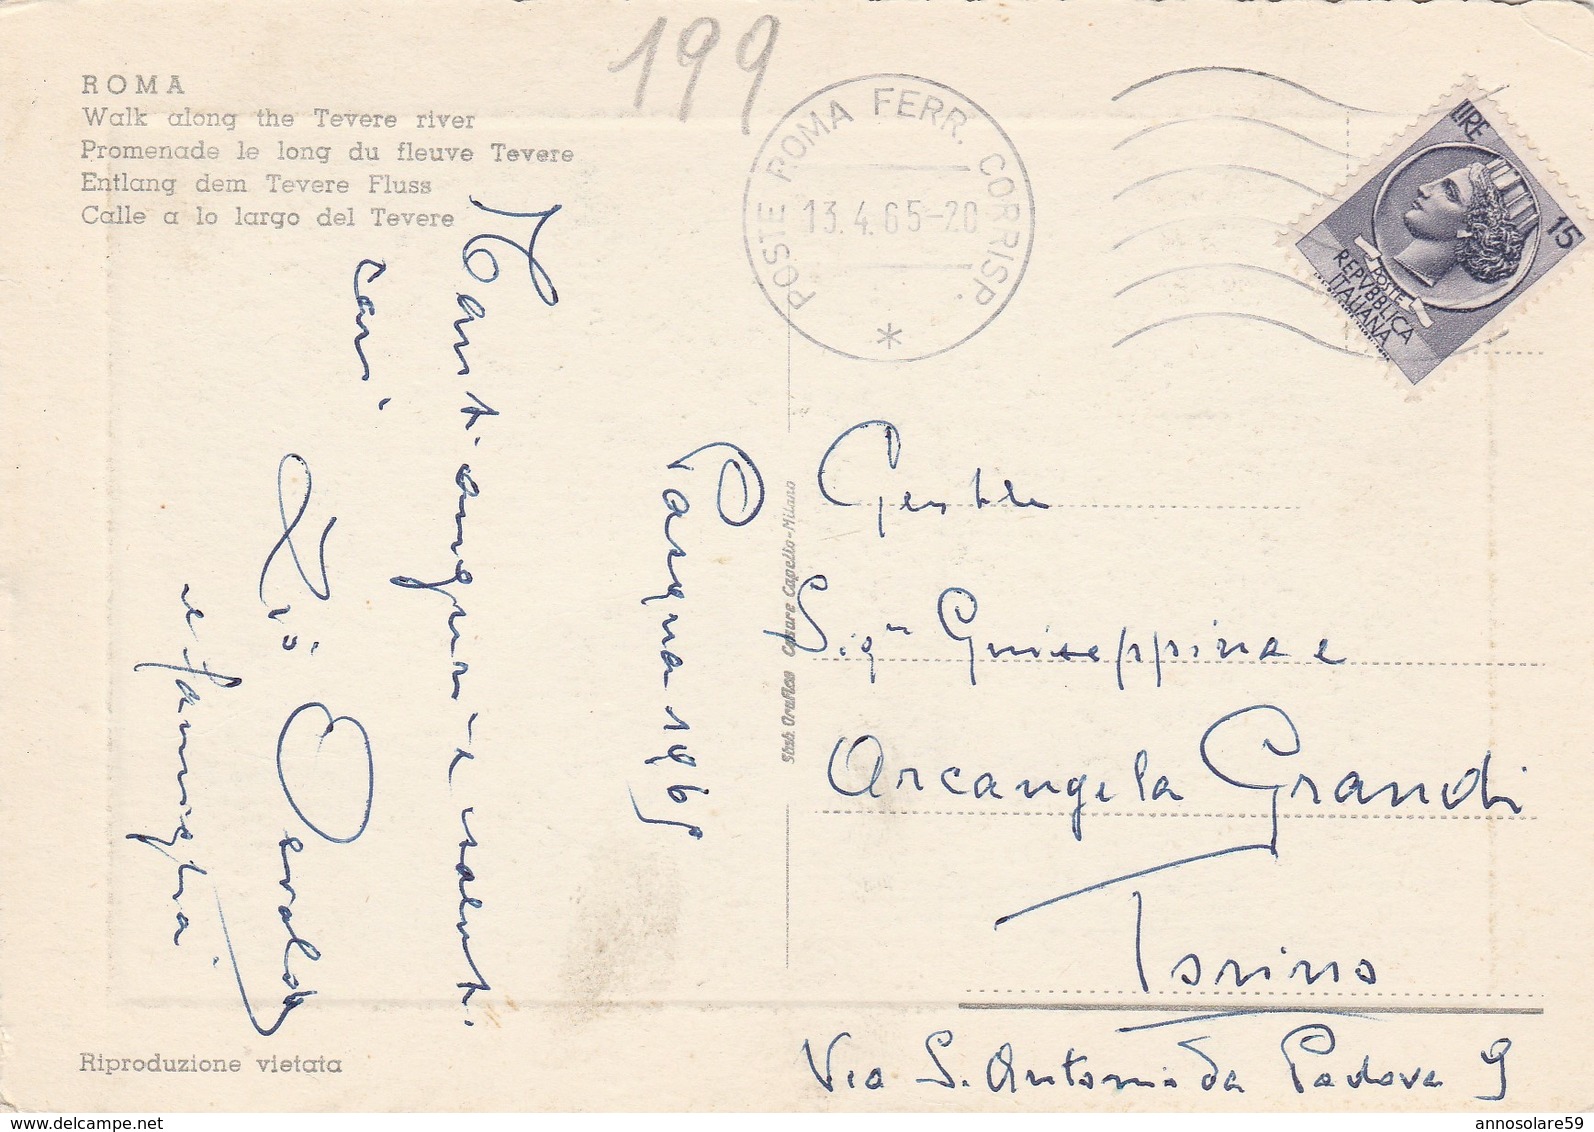 199
ROMA
Walk along the Tevere river
Promenade le long du fleuve Tevere
Entlang dem Tevere Fluss
Calle a lo largo del Tevere
POSTE ROMA FERR. CORRISP.
13.4.65-20
*
LIRE 15
POSTE
REPVBBLICA
ITALIANA
Pasqua 1965
Tanti auguri e salut.
cari
Zio Osvaldo
e famiglia
Stab. Grafico Cesare Capello-Milano
Gent.le
Sig.ne Giuseppina e
Arcangela Grandi
Torino
Via S. Antonio da Padova 9
Riproduzione vietata
www.delcampe.net
annosolare59